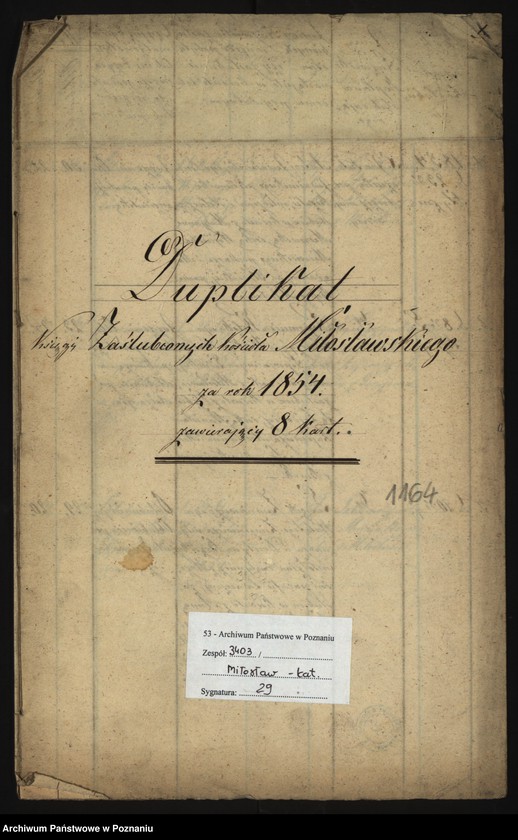 x
Duplikat
księgi Zaślubionych kościoła Miłosławskiego
za rok 1854.
zawierający 8 kart.
1164
53 - Archiwum Państwowe w Poznaniu
Zespół: 3403 /
Miłosław - kat.
Sygnatura: 29
Archiwum Państwowe w Poznaniu
Archiwum Państwowe w Poznaniu